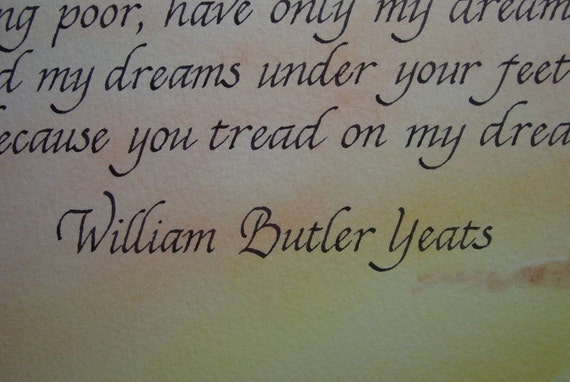 ng poor, have only my dream
d my dreams under your feet
ecause you tread on my drea
William Butler Yeats